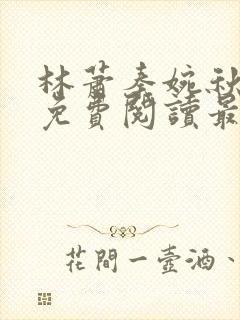 林蕭秦婉秋
免費閱讀最
花間一壺酒、